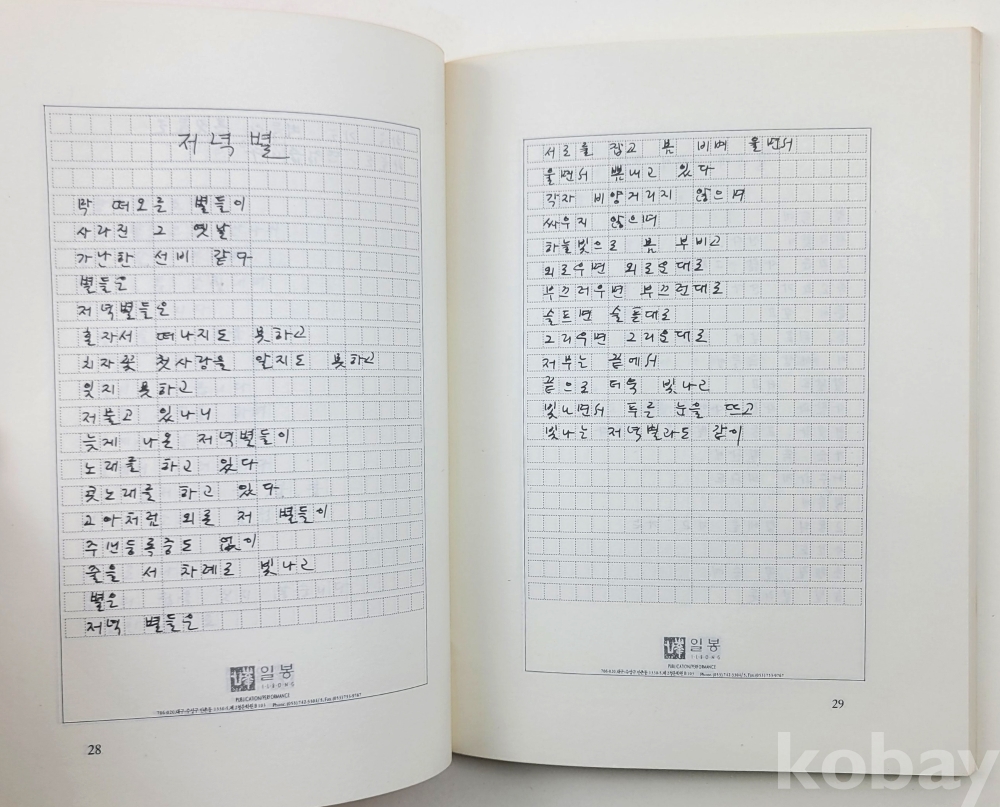 저녁 별
막 떠오를 별들이
사라진 그 옛날
가난한 선비 같다
별들은
저녁별들은
혼자서 떠나지도 못하고
치자꽃 첫사랑을 알지도 못하고
잊지 못하고
저물고 있나니
늦게 나온 저녁별들이
노래를 하고 있다
콧노래를 하고 있다
고아처럼 외롤 저 별들이
주민등록증도 없이
줄을 서 차례로 빛나고
별은
저녁 별들은
일봉
ILBONG
PUBLICATION/PERFORMANCE
28
서로를 잡고 봄 비벼 울면서
울면서 뽐내고 있다
각자 비양거리지 않으며
싸우지 않으며
하늘빛으로 봄 부비고
외로우면 외로운대로
부끄러우면 부끄런대로
슬프면 슬픈대로
그리우면 그리운대로
저무는 끝에서
끝으로 더욱 빛나고
빛나면서 푸른 눈을 뜨고
빛나는 저녁별라도 같이
일봉
ILBONG
PUBLICATION/PERFORMANCE
29
kobay